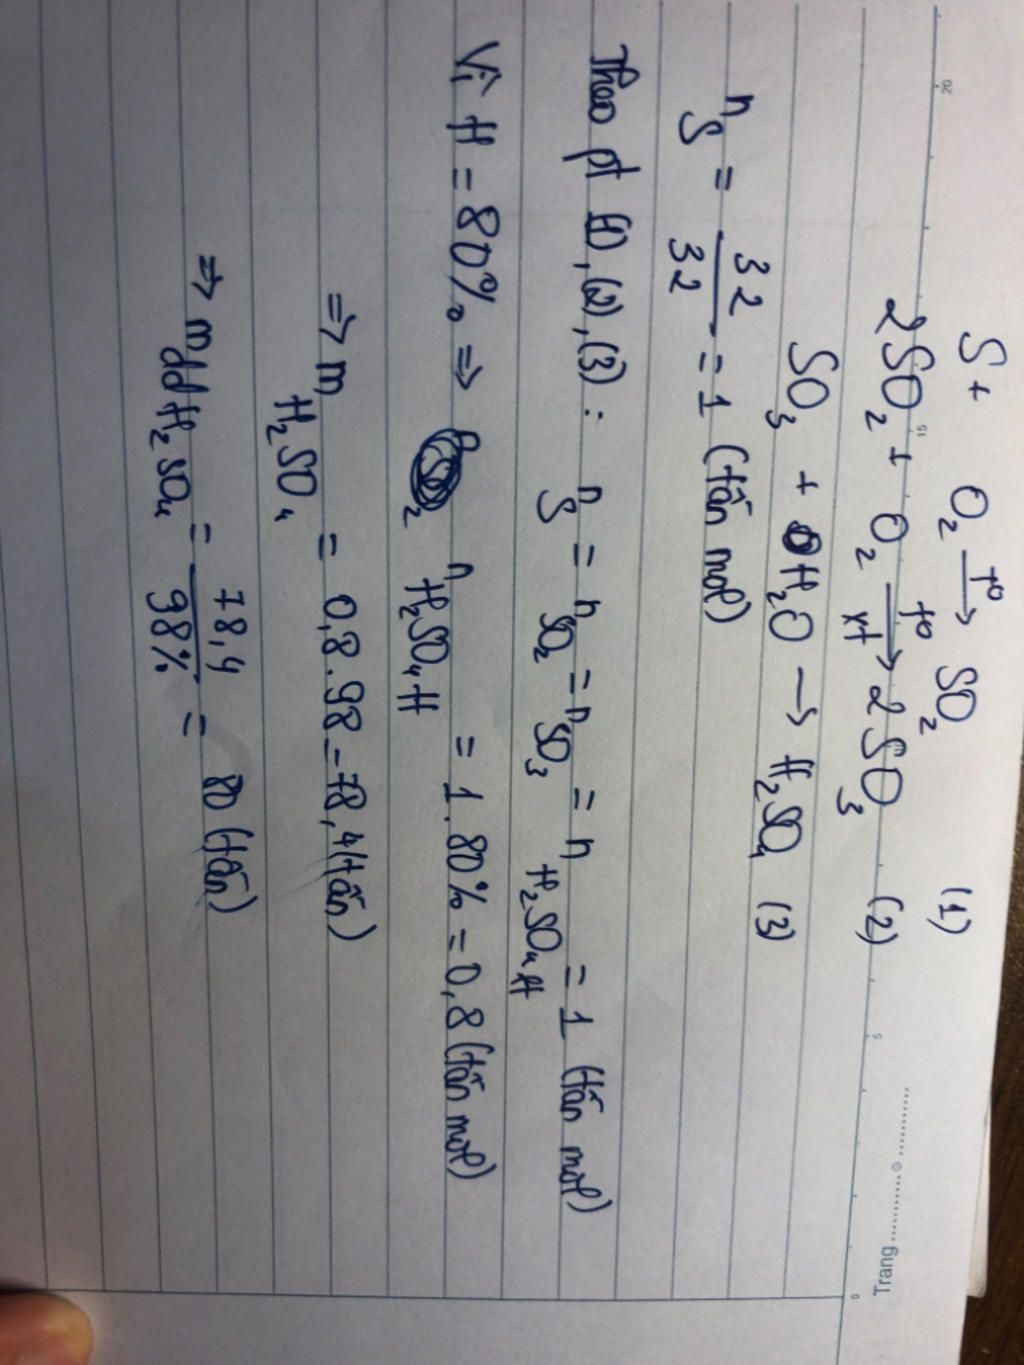 Trang ..........o..........
20 15 5 0
S + O₂ →(t°) SO₂ (1)
2SO₂ + O₂ →(t°, xt) 2SO₃ (2)
SO₃ + H₂O → H₂SO₄ (3)
n_S = 32/32 = 1 (tấn mol)
Theo pt (1), (2), (3): n_S = n_SO₂ = n_SO₃ = n_H₂SO₄ lt = 1 (tấn mol)
Vì H = 80% ⇒ n_H₂SO₄ tt = 1.80% = 0,8 (tấn mol)
⇒ m_H₂SO₄ = 0,8.98 = 78,4 (tấn)
⇒ m_dd H₂SO₄ = 78,4/98% = 80 (tấn)